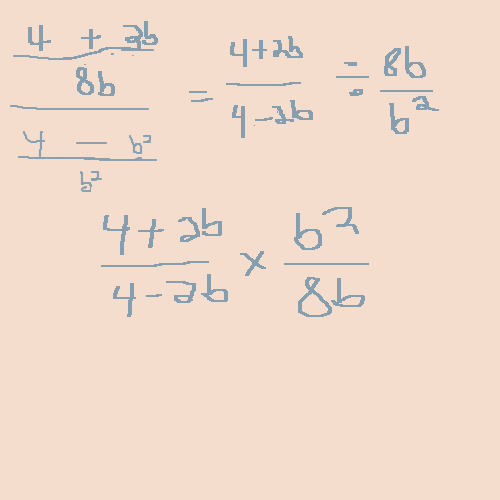 4 + 2b
8b
4 - b²
b²
= 4+2b / 4-2b ÷ 8b / b²
4+2b / 4-2b × b² / 8b